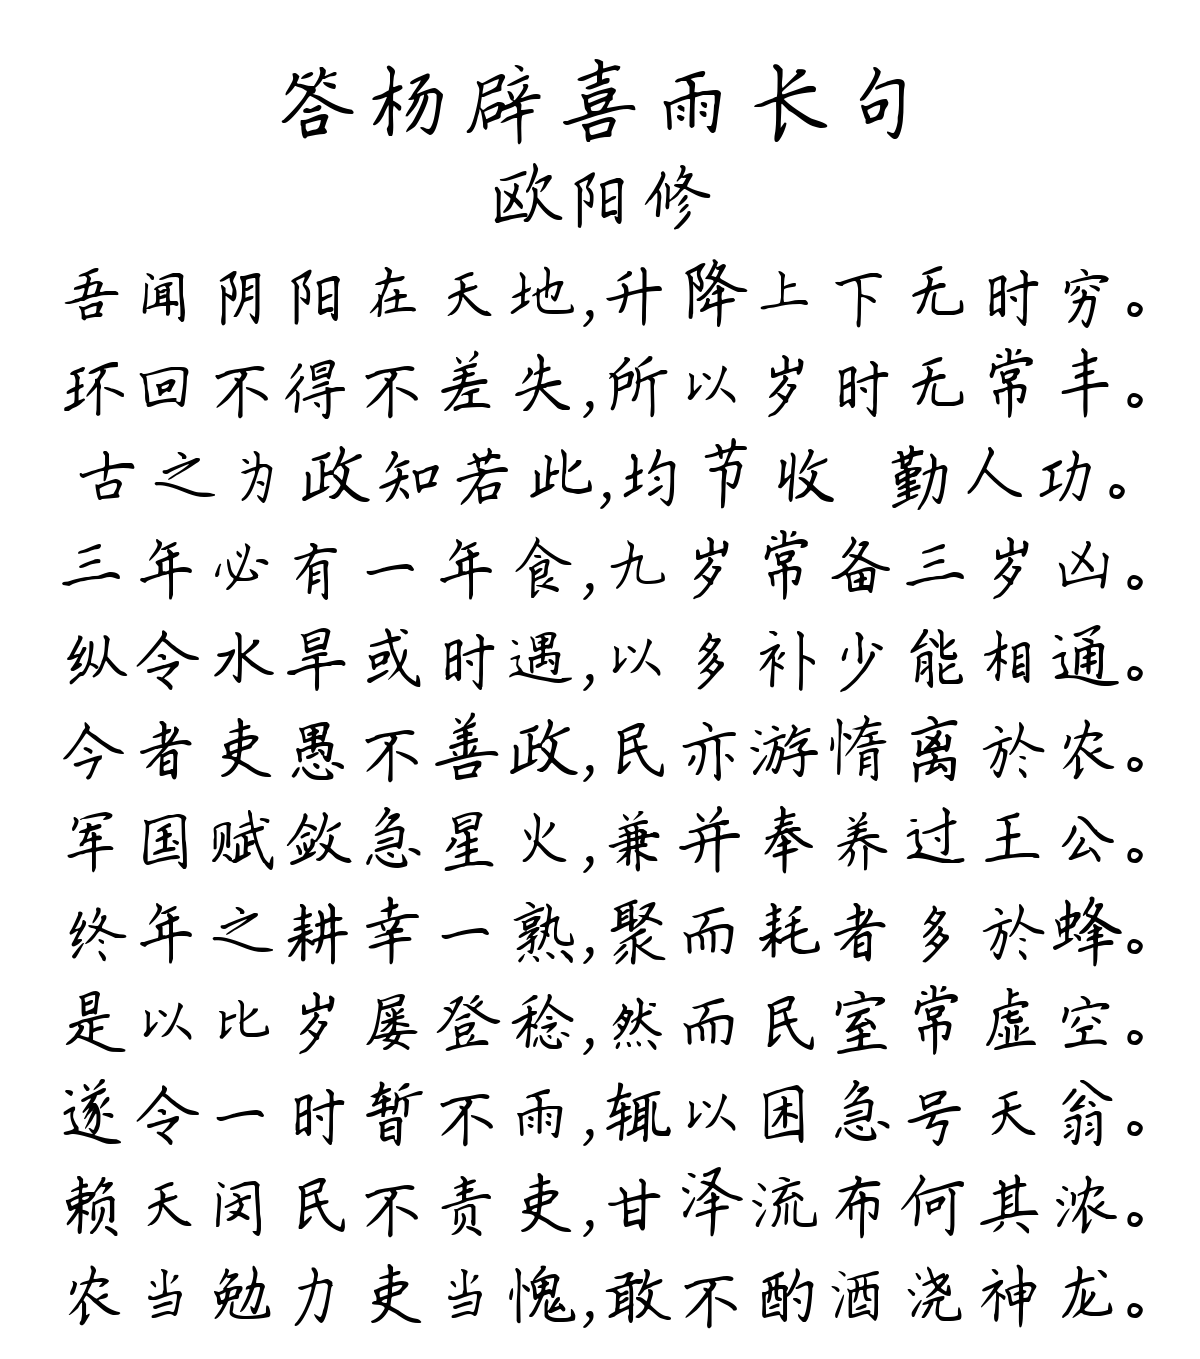 答杨辟喜雨长句
欧阳修
吾闻阴阳在天地,升降上下无时穷。
环回不得不差失,所以岁时无常丰。
古之为政知若此,均节收 勤人功。
三年必有一年食,九岁常备三岁凶。
纵令水旱或时遇,以多补少能相通。
今者吏愚不善政,民亦游惰离於农。
军国赋敛急星火,兼并奉养过王公。
终年之耕幸一熟,聚而耗者多於蜂。
是以比岁屡登稔,然而民室常虚空。
遂令一时暂不雨,辄以困急号天翁。
赖天闵民不责吏,甘泽流布何其浓。
农当勉力吏当愧,敢不酌酒浇神龙。